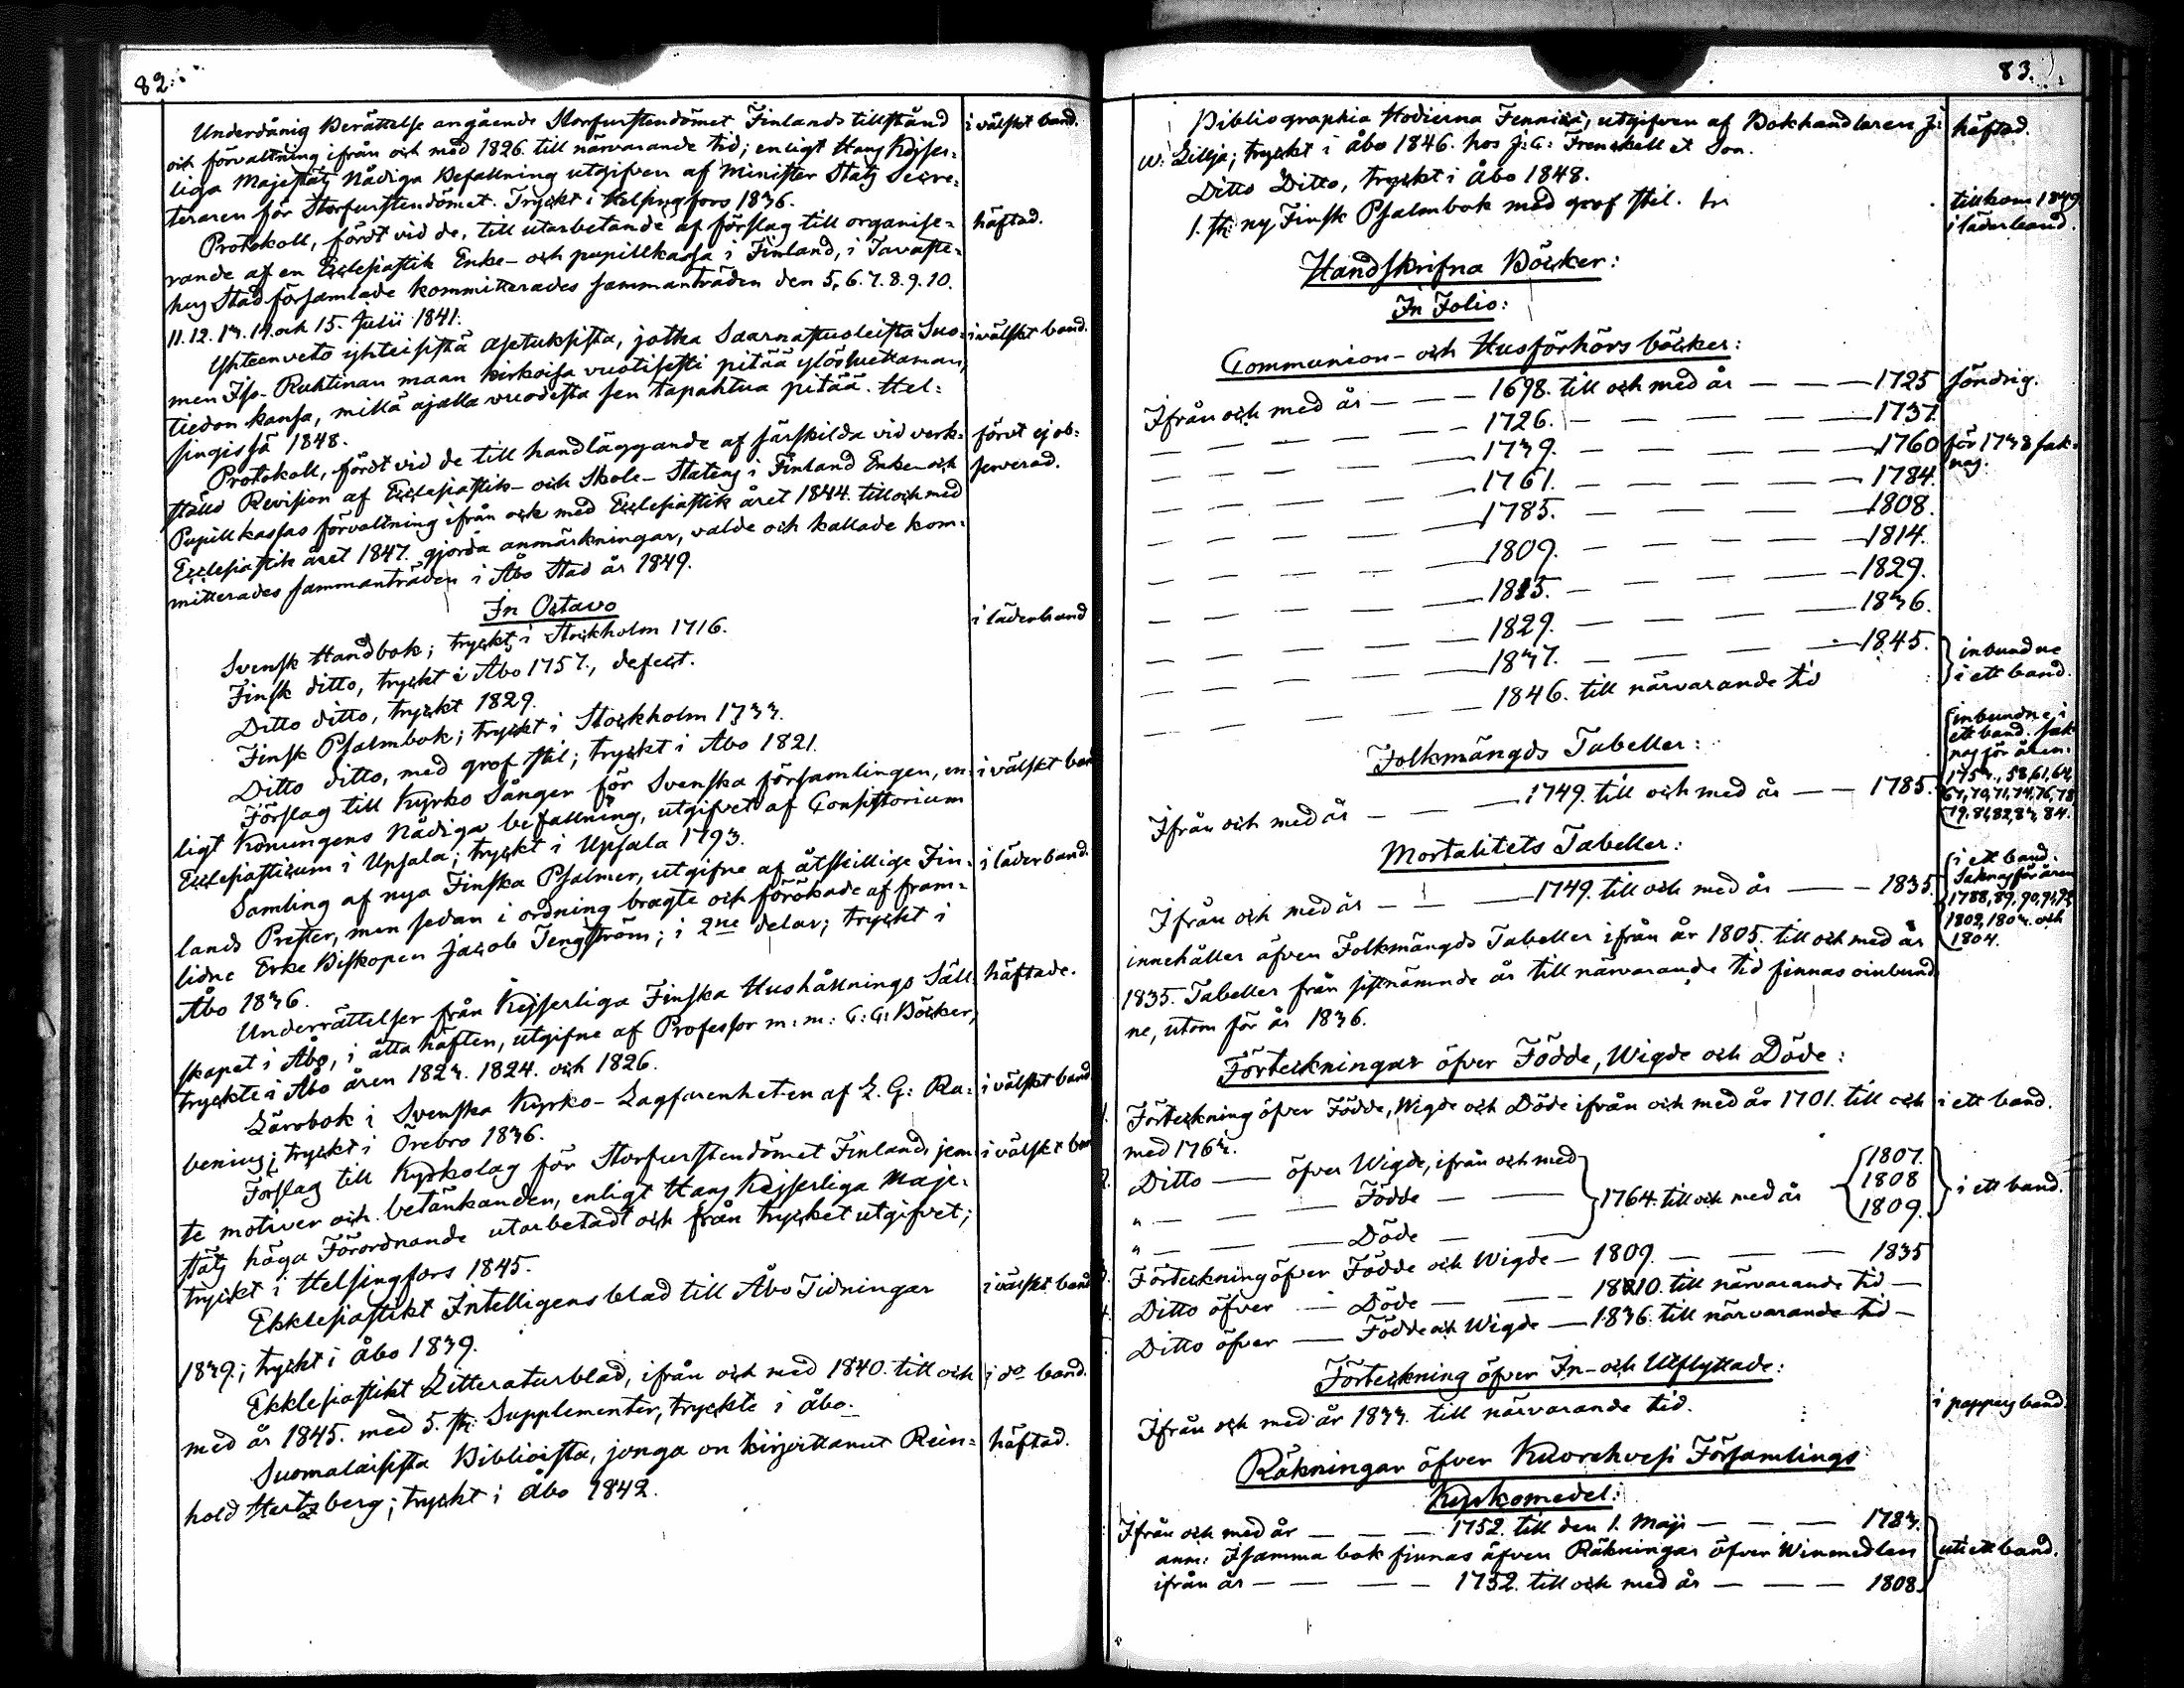 82.
Underdånig Berättelse angående Storfurstendömet Finlands tillstånd i välskt band.
och förvaltning ifrån och med 1826. till närvarande tid; enligt Hans Kejser-
liga Majestäts Nådiga Befallning utgifven af Minister Stats Secre-
teraren för Storfurstendömet. Tryckt i Helsingfors 1836.
Protokoll, fördt vid de, till utarbetande af förslag till organise- häftad.
rande af en Ecclesiastik Enke- och pupillkassa i Finland, i Tavaste-
hus Stad församlade kommitterades sammanträden den 5. 6. 7. 8. 9. 10.
11. 12. 13. 14. och 15. Julii 1841.
Yhteenveto yhteisistä asetuksista, jotka Saarnastuoleista Suo- i välskt band.
men Iso-Ruhtinan maan kirkoisa vuotisesti pitää ylösluettaman,
tiedon kansa, millä ajalla vuodesta sen tapahtua pitää. Hel-
singissä 1848.
Protokoll, fördt vid de till handläggande af särskilda vid verk- förut ej ob-
ställd Revision af Ecclesiastik- och Skole-Statens i Finland Enke- och serverad.
Pupillkassas förvaltning ifrån och med Ecclesiastik året 1844. till och med
Ecclesiastik året 1847. gjorda anmärkningar, valde och kallade kom-
mitterades sammanträden i Åbo Stad år 1849.
In Octavo
Svensk Handbok; tryckt i Stockholm 1716. i läderband
Finsk ditto, tryckt i Åbo 1757., defect.
Ditto ditto, tryckt 1829.
Finsk Psalmbok; tryckt i Stockholm 1733.
Ditto ditto, med grof stil; tryckt i Åbo 1821.
Förslag till Kyrko Sånger för Svenska församlingen, en- i välskt band
ligt Konungens Nådiga befallning, utgifvet af Consistorium
Ecclesiasticum i Upsala; tryckt i Upsala 1793.
Samling af nya Finska Psalmer, utgifne af åtskillige Fin- i läderband.
lands Prester, men sedan i ordning bragte och förökade af fram-
lidne Erke Biskopen Jacob Tengström; i 2ne delar; tryckt i
Åbo 1836.
Underrättelser från Kejserliga Finska Hushållnings Säll- häftade.
skapet i Åbo, i åtta häften, utgifne af Professor m: m: C: C: Böcker,
tryckte i Åbo åren 1823. 1824. och 1826.
Lärobok i Svenska Kyrko-Lagfarenheten af L. G: Ra- i välskt band
bening; tryckt i Örebro 1836.
Förslag till Kyrkolag för Storfurstendömet Finland, jem- i välskt band
te motiver och betänkanden, enligt Hans Kejserliga Maje-
stäts höga Förordnande utarbetadt och från trycket utgifvet;
tryckt i Helsingfors 1845.
Ekklesiastikt Intelligensblad till Åbo Tidningar i välskt band
1839; tryckt i Åbo 1839.
Ekklesiastikt Litteraturblad, ifrån och med 1840. till och i do band.
med år 1845. med 5. st: Supplementer, tryckte i Åbo.
Suomalaisista Biblioista, jonga on kirjoittanut Rein- häftad.
hold Hertzberg; tryckt i Åbo 1842.
83.
Bibliographia Hodierna Fennica; utgifven af Bokhandlaren J: häftad.
W: Lillja; tryckt i Åbo 1846. hos J: C: Frenckell et Son.
Ditto Ditto, tryckt i Åbo 1848.
1. st: ny Finsk Psalmbok med grof stil. tillkom 1849
i läderband.
Handskrifna Böcker:
In Folio:
Communion- och Husförhörs böcker:
Ifrån och med år — — — 1698. till och med år — — — 1725 söndrig.
— — — — — 1726. — — — — 1737.
— — — — — 1739. — — — — 1760 för 1738 sak-
nas.
— — — — — 1761. — — — — 1784.
— — — — — 1785. — — — — 1808.
— — — — — 1809. — — — — 1814.
— — — — — 1815. — — — — 1829.
— — — — — 1829. — — — — 1836.
— — — — — 1837. — — — — 1845. inbundne
i ett band.
— — — — — 1846. till närvarande tid
Folkmängds Tabeller:
Ifrån och med år — — — 1749. till och med år — — 1785.
inbundne i
ett band. sak-
nas för åren:
1753., 58, 61, 64,
67, 70, 71, 74, 76, 78
79. 81, 82, 83, 84.
Mortalitets Tabeller:
Ifrån och med år — — — 1749. till och med år — — 1835.
i ett band.
Saknas för åren
1788, 89, 90, 91, 
1802, 1803. och
1804.
innehåller äfven Folkmängds Tabeller ifrån år 1805. till och med år
1835. Tabeller från sistnämnde år till närvarande tid finnas oinbund-
ne, utom för år 1836.
Förteckningar öfver Födde, Wigde och Döde:
1. Förteckning öfver Födde, Wigde och Döde ifrån och med år 1701. till och i ett band.
med 1763.
2. Ditto — öfver Wigde, ifrån och med 1807.
" — — — Födde — — 1764. till och med år 1808 i ett band.
" — — — Döde — — 1809.
3. Förteckning öfver Födde och Wigde — 1809. — — — 1835
4. Ditto öfver — Döde — — — 1810. till närvarande tid —
Ditto öfver — Födde och Wigde — 1836. till närvarande tid —
Förteckning öfver In- och Utflyttade:
Ifrån och med år 1833. till närvarande tid. i pappers band.
Räkningar öfver Kuorehvesi Församlings
Kyrkomedel:
Ifrån och med år — — — 1752. till den 1. Maji — — — 1783.
anm: I samma bok finnas äfven Räkningar öfver Winmedlen uti ett band.
ifrån år — — — — 1752. till och med år — — — 1808.